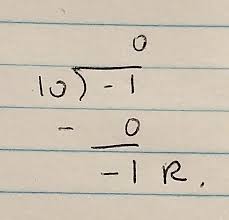 0
10) -1
- 0
-1 R.